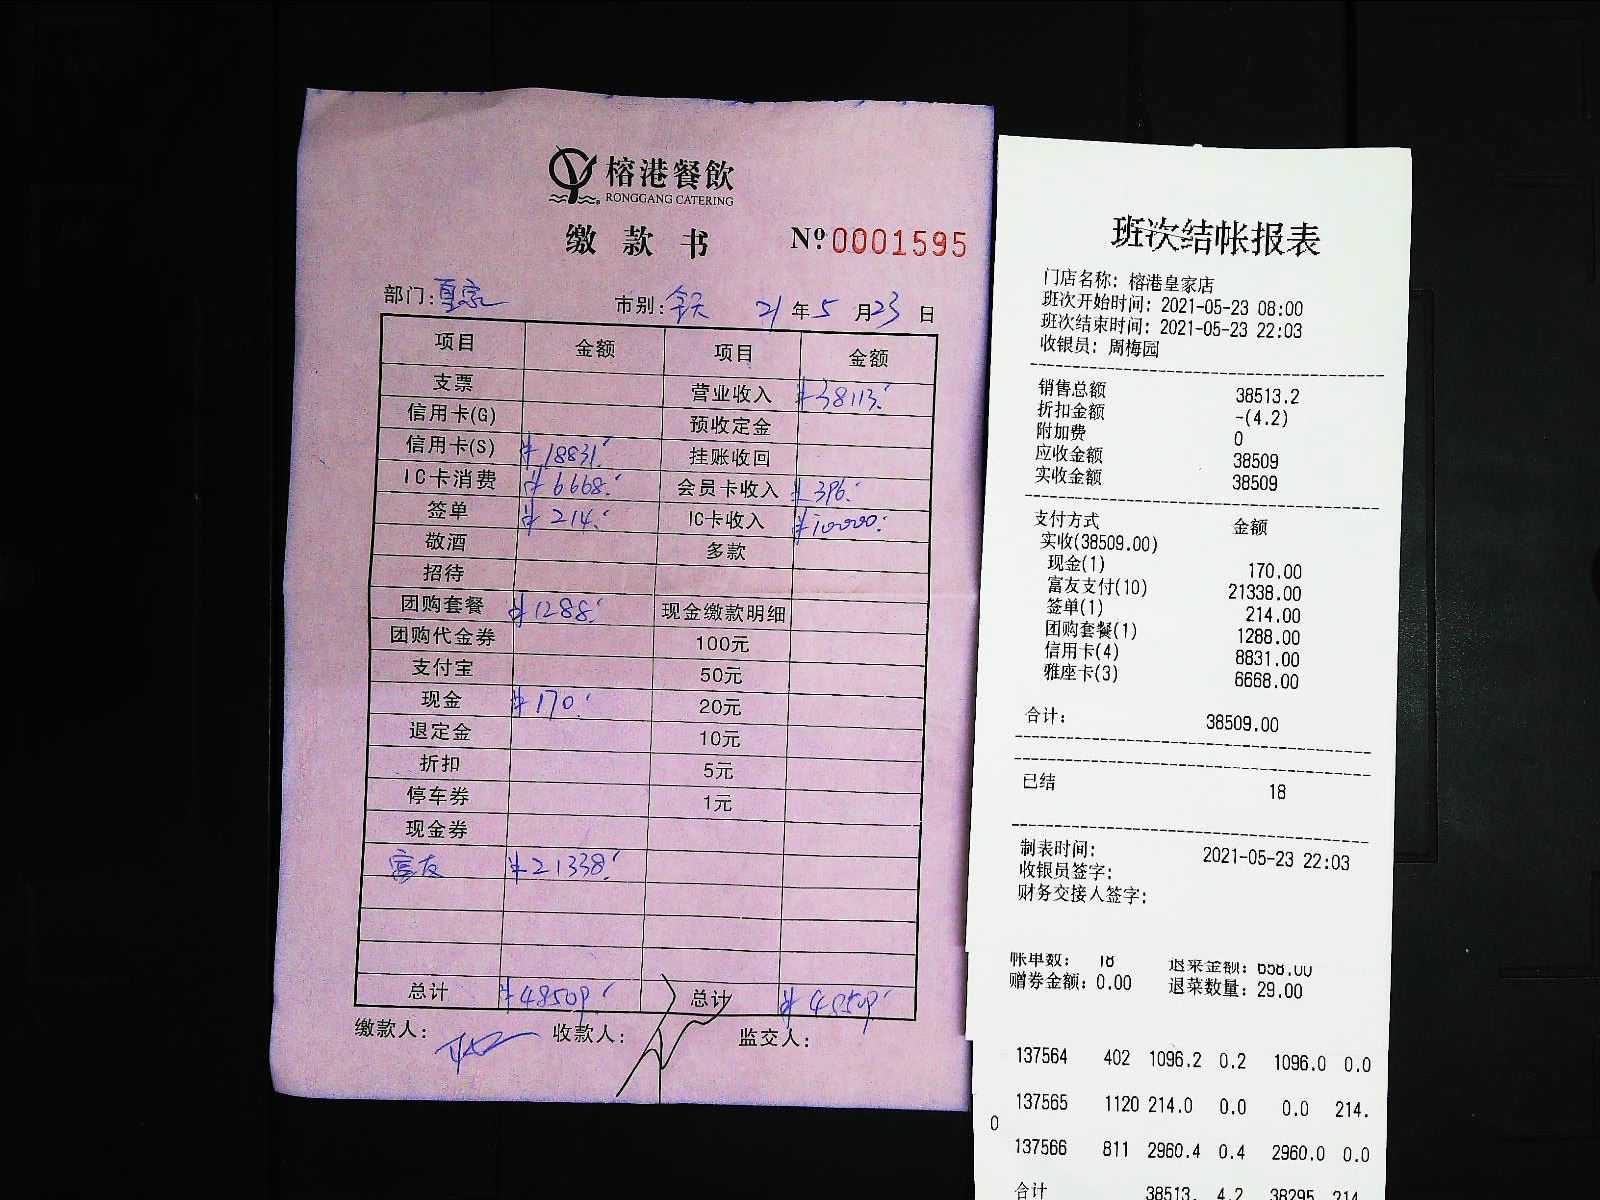 榕港餐飲
RONGGANG CATERING
缴款书 №0001595
部门:皇家 市别:全天 21年5月23日
项目 金额 项目 金额
支票 营业收入 ¥38113.
信用卡(G) 预收定金
信用卡(S) ¥18831. 挂账收回
IC卡消费 ¥6668. 会员卡收入 ¥396.
签单 ¥214. IC卡收入 ¥10000.
敬酒 多款
招待
团购套餐 ¥1288. 现金缴款明细
团购代金券 100元
支付宝 50元
现金 ¥170. 20元
退定金 10元
折扣 5元
停车券 1元
现金券
富友 ¥21338.
总计 ¥48509. 总计 ¥48509.
缴款人: 收款人: 监交人:
班次结帐报表
门店名称: 榕港皇家店
班次开始时间: 2021-05-23 08:00
班次结束时间: 2021-05-23 22:03
收银员: 周梅园
销售总额 38513.2
折扣金额 -(4.2)
附加费 0
应收金额 38509
实收金额 38509
支付方式 金额
实收(38509.00)
现金(1) 170.00
富友支付(10) 21338.00
签单(1) 214.00
团购套餐(1) 1288.00
信用卡(4) 8831.00
雅座卡(3) 6668.00
合计: 38509.00
已结 18
制表时间: 2021-05-23 22:03
收银员签字:
财务交接人签字:
帐单数: 18 退菜金额: 658.00
赠券金额: 0.00 退菜数量: 29.00
137564 402 1096.2 0.2 1096.0 0.0
137565 1120 214.0 0.0 0.0 214.
0
137566 811 2960.4 0.4 2960.0 0.0
合计 38513. 4.2 38295 214